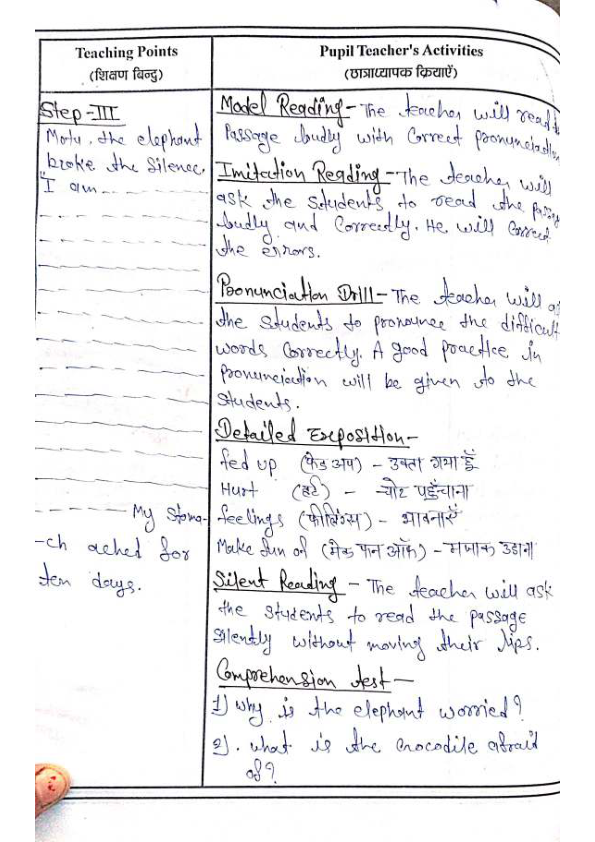 Teaching Points
(शिक्षण बिन्दु)
Step-III
Motu, the elephant
broke the silence.
"I am
My stoma-
-ch ached for
ten days.
Pupil Teacher's Activities
(छात्राध्यापक क्रियाएँ)
Model Reading - The teacher will read
Passage loudly with correct pronunciation
Imitation Reading - The teacher will
ask the students to read the passage
loudly and correctly. He will correct
the errors.
Pronunciation Drill - The teacher will
the students to pronounce the difficult
words correctly. A good practice in
Pronunciation will be given to the
students.
Detailed Exposition -
fed up (फेड अप) - उकता गया हूँ
Hurt (हर्ट) - चोट पहुँचाना
feelings (फीलिंग्स) - भावनाएँ
Make fun of (मेक फन ऑफ) - मजाक उडाना
Silent Reading - The teacher will ask
the students to read the passage
silently without moving their lips.
Comprehension test -
1) Why is the elephant worried?
2). What is the crocodile afraid
of?